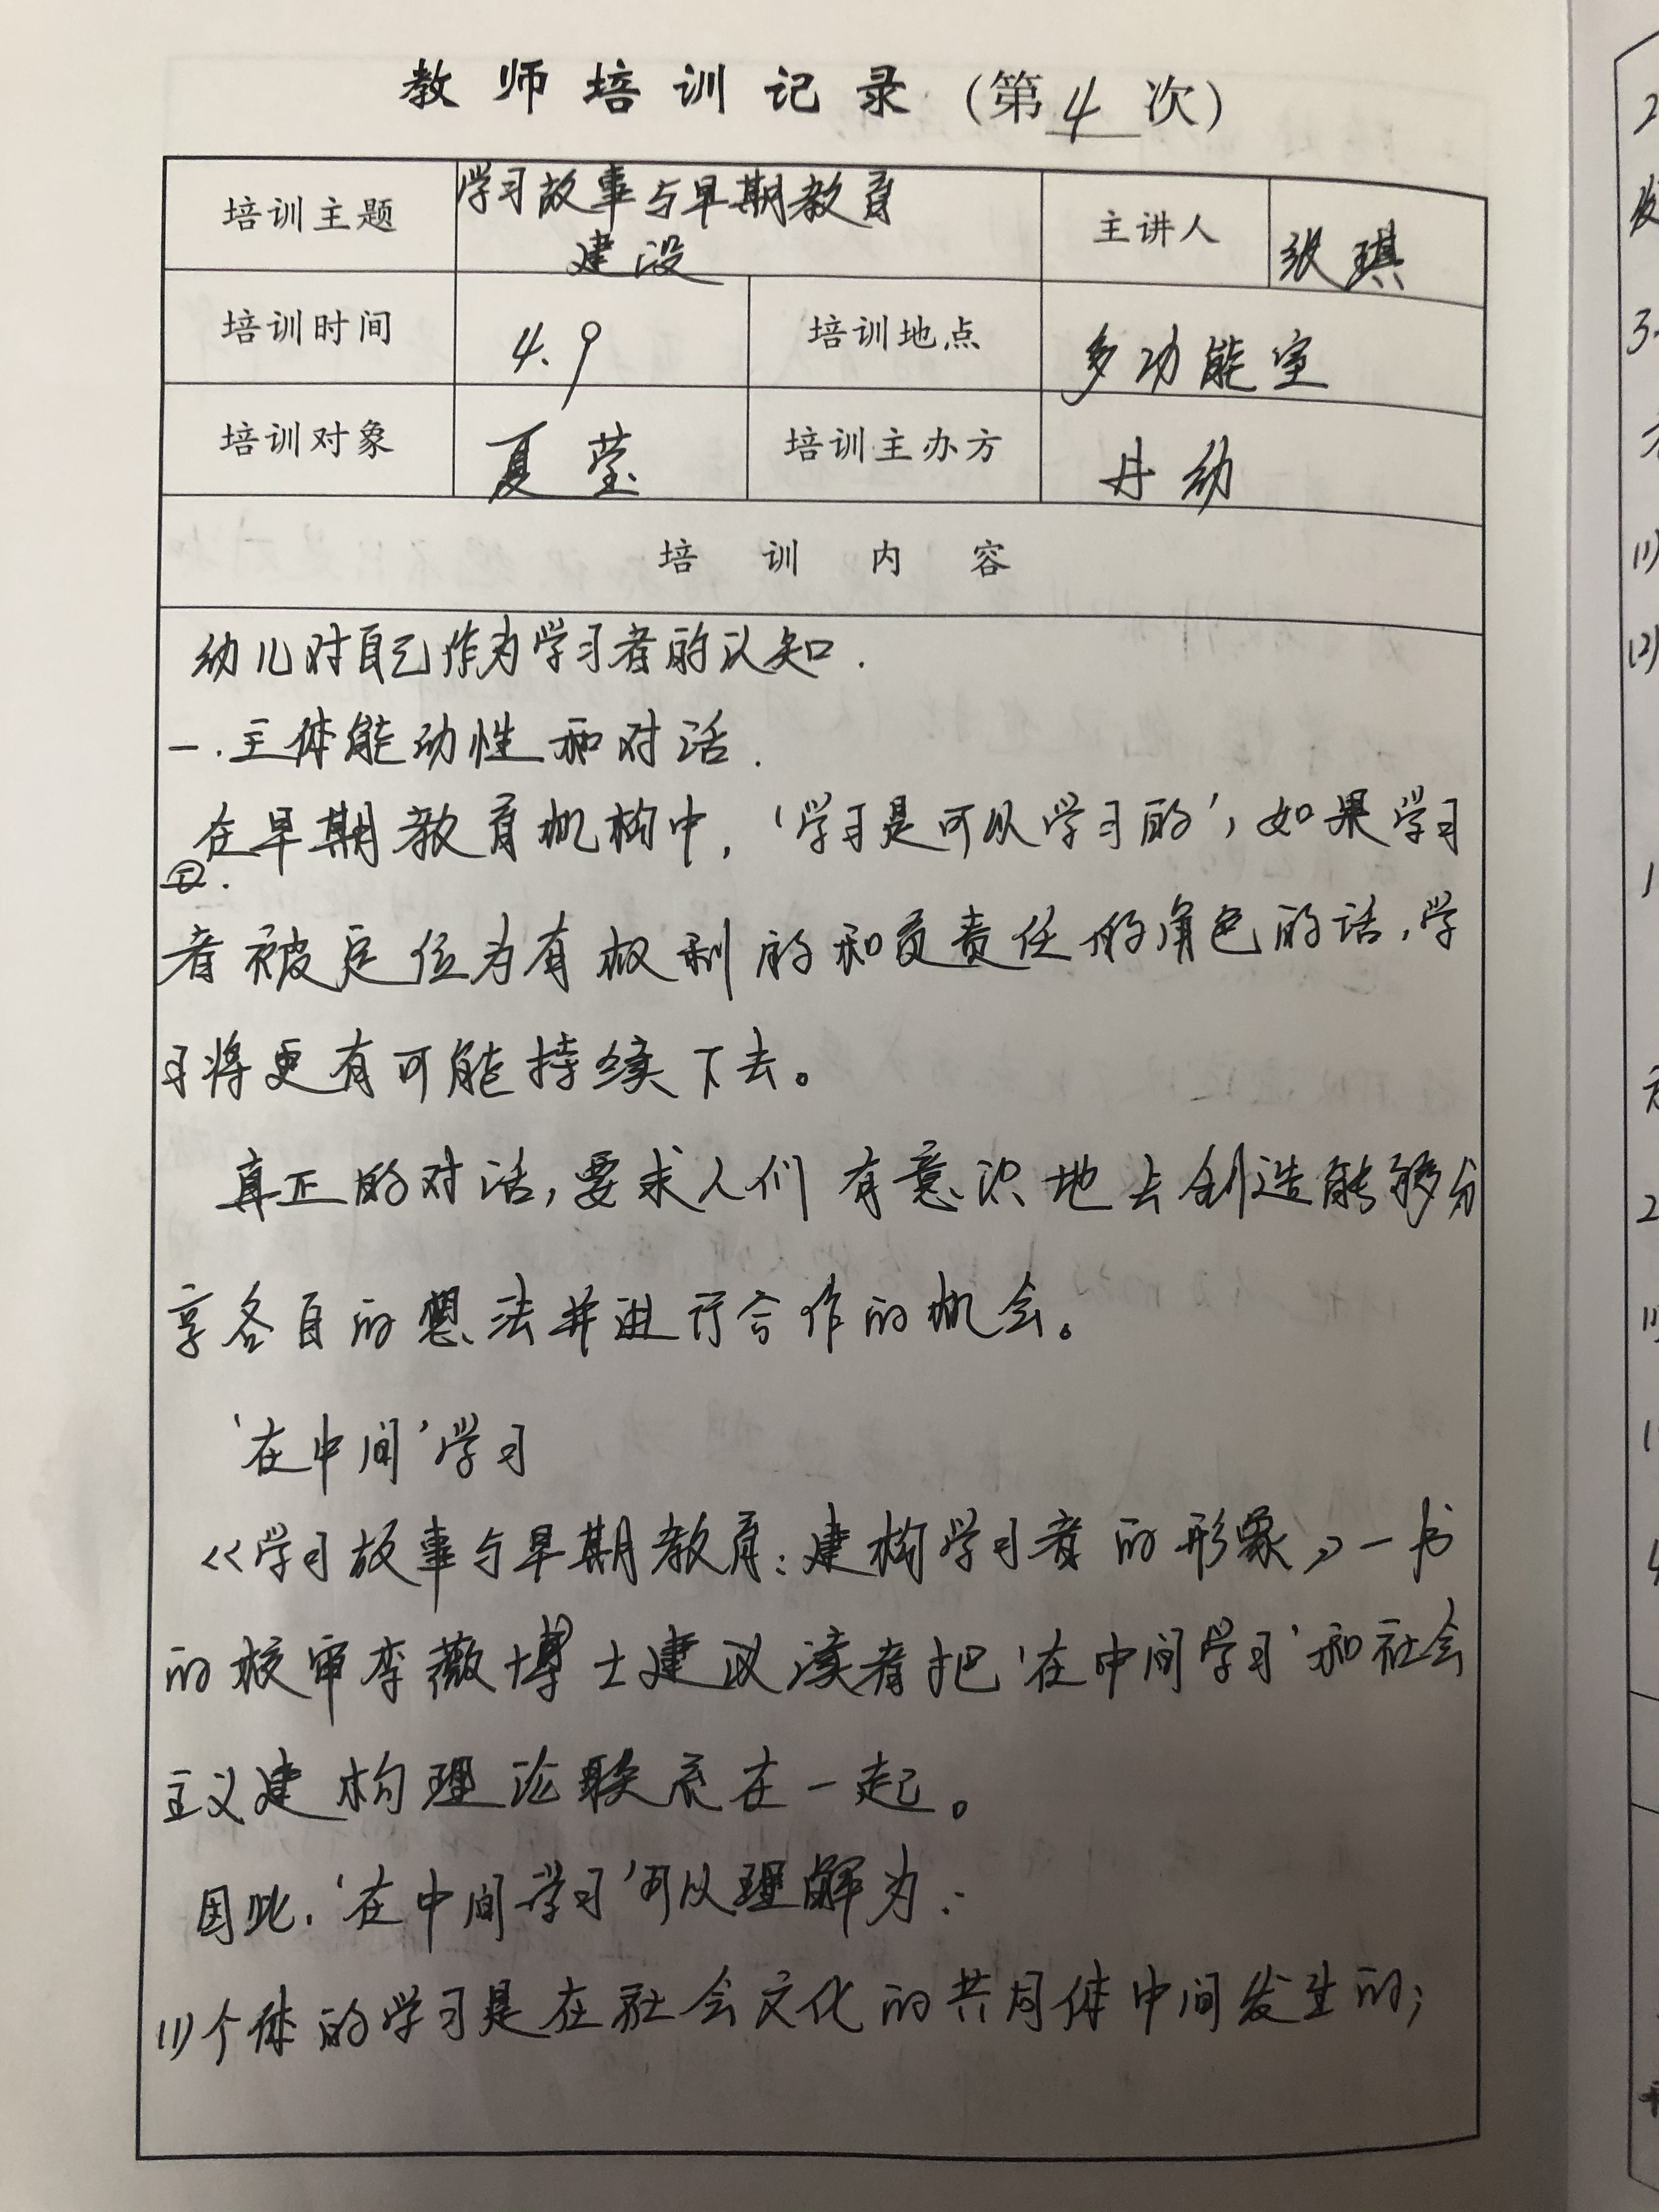 教师培训记录（第4次）
培训主题 学习故事与早期教育建设 主讲人 张琪
培训时间 4.9 培训地点 多功能室
培训对象 夏莹 培训主办方 丹幼
培训内容
幼儿对自己作为学习者的认知.
一.主体能动性和对话.
在早期教育机构中,‘学习是可以学习的’,如果学习
者被定位为有权利的和负责任的角色的话,学
习将更有可能持续下去。
真正的对话,要求人们有意识地去创造能够分
享各自的想法并进行合作的机会。
‘在中间’学习
《学习故事与早期教育:建构学习者的形象》一书
的校审李薇博士建议读者把‘在中间学习’和社会
主义建构理论联系在一起。
因此.‘在中间学习’可以理解为:
(1)个体的学习是在社会文化的共同体中间发生的;